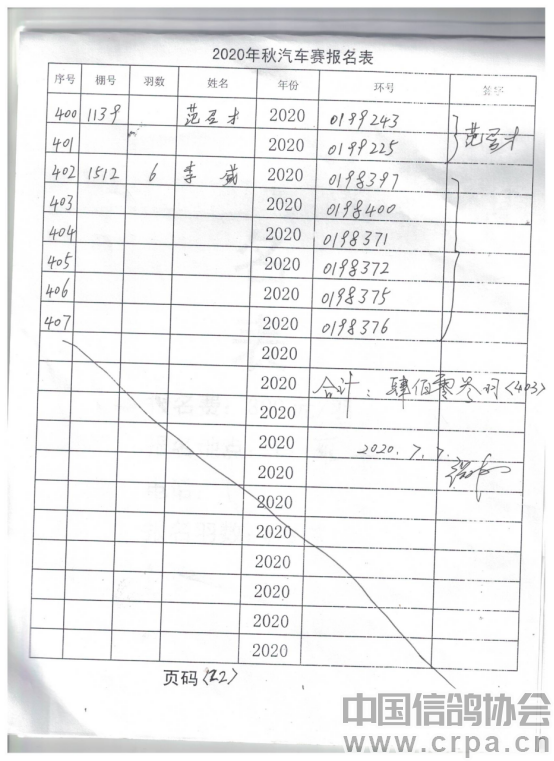 2020年秋汽车赛报名表
序号 棚号 羽数 姓名 年份 环号 签字
400 1139 范召才 2020 0199243
401 2020 0199225 范召才
402 1512 6 李 2020 0198397
403 2020 0198400
404 2020 0198371
405 2020 0198372
406 2020 0198375
407 2020 0198376
2020
2020 合计：肆佰零叁羽<403>
2020
2020 2020.7.7.
2020
2020
2020
2020
2020
2020
2020
页码<22>
中国信鸽协会
www.crpa.cn